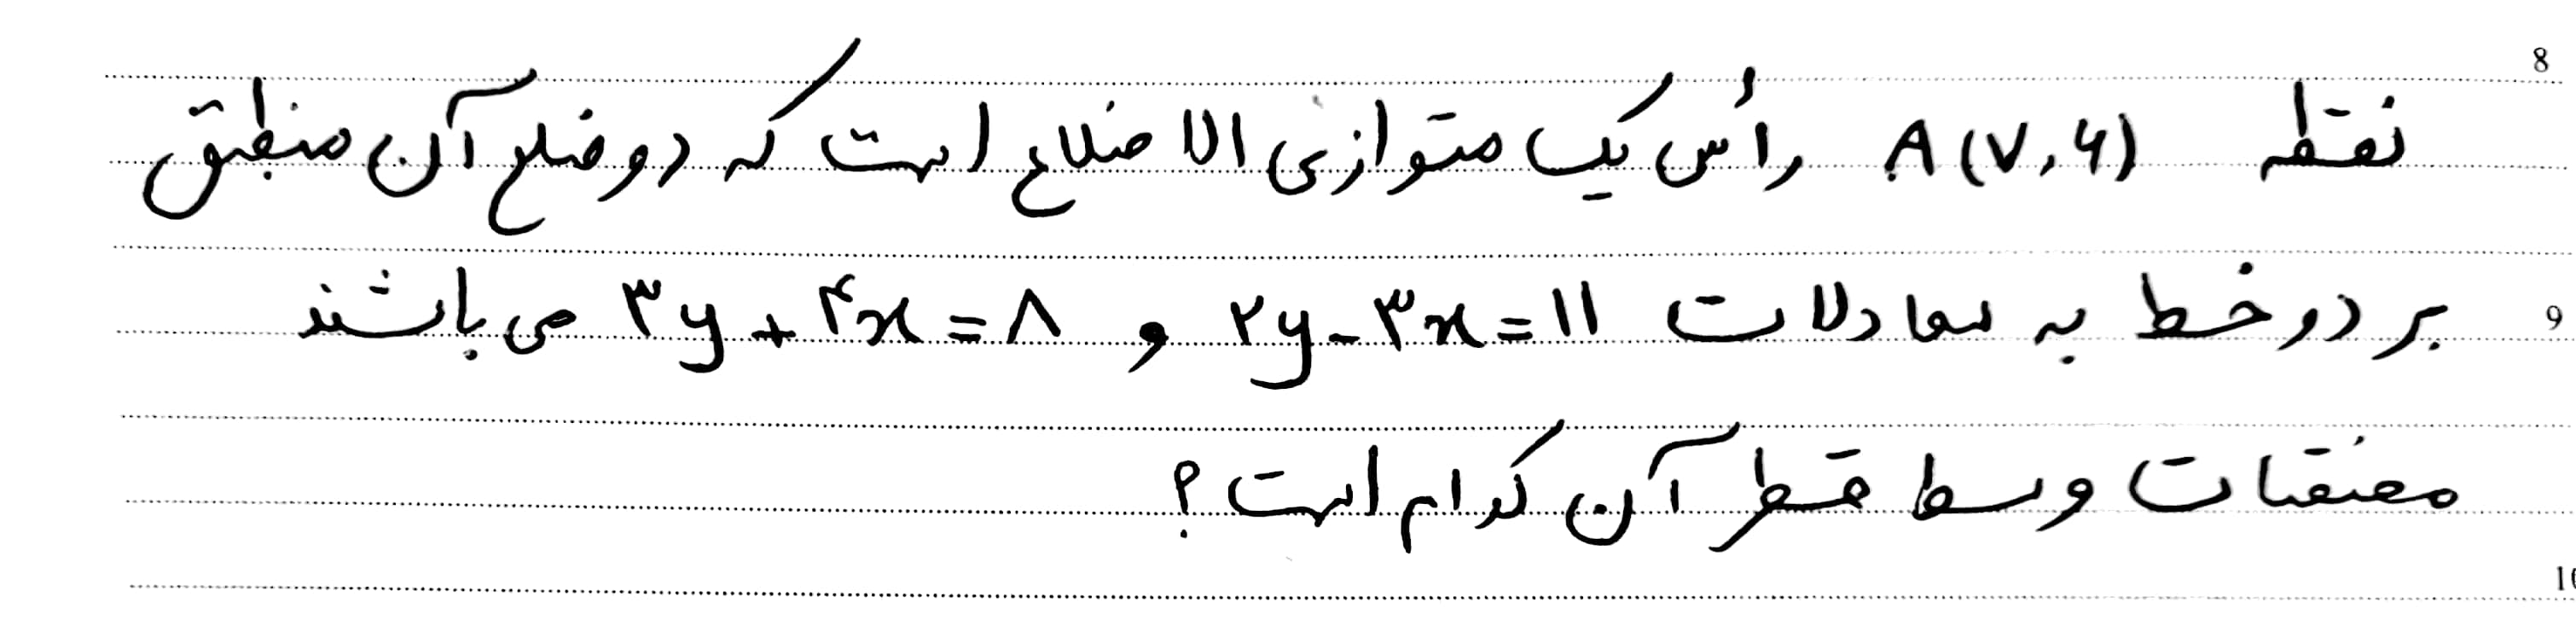 8
نقطه A(۷,۶) رأس یک متوازی الاضلاع است که دو ضلع آن منطبق
بر دو خط به معادلات ۲y-۳x=۱۱ و ۳y+۴x=۸ می باشند 9
مختصات وسط قطر آن کدام است؟
10